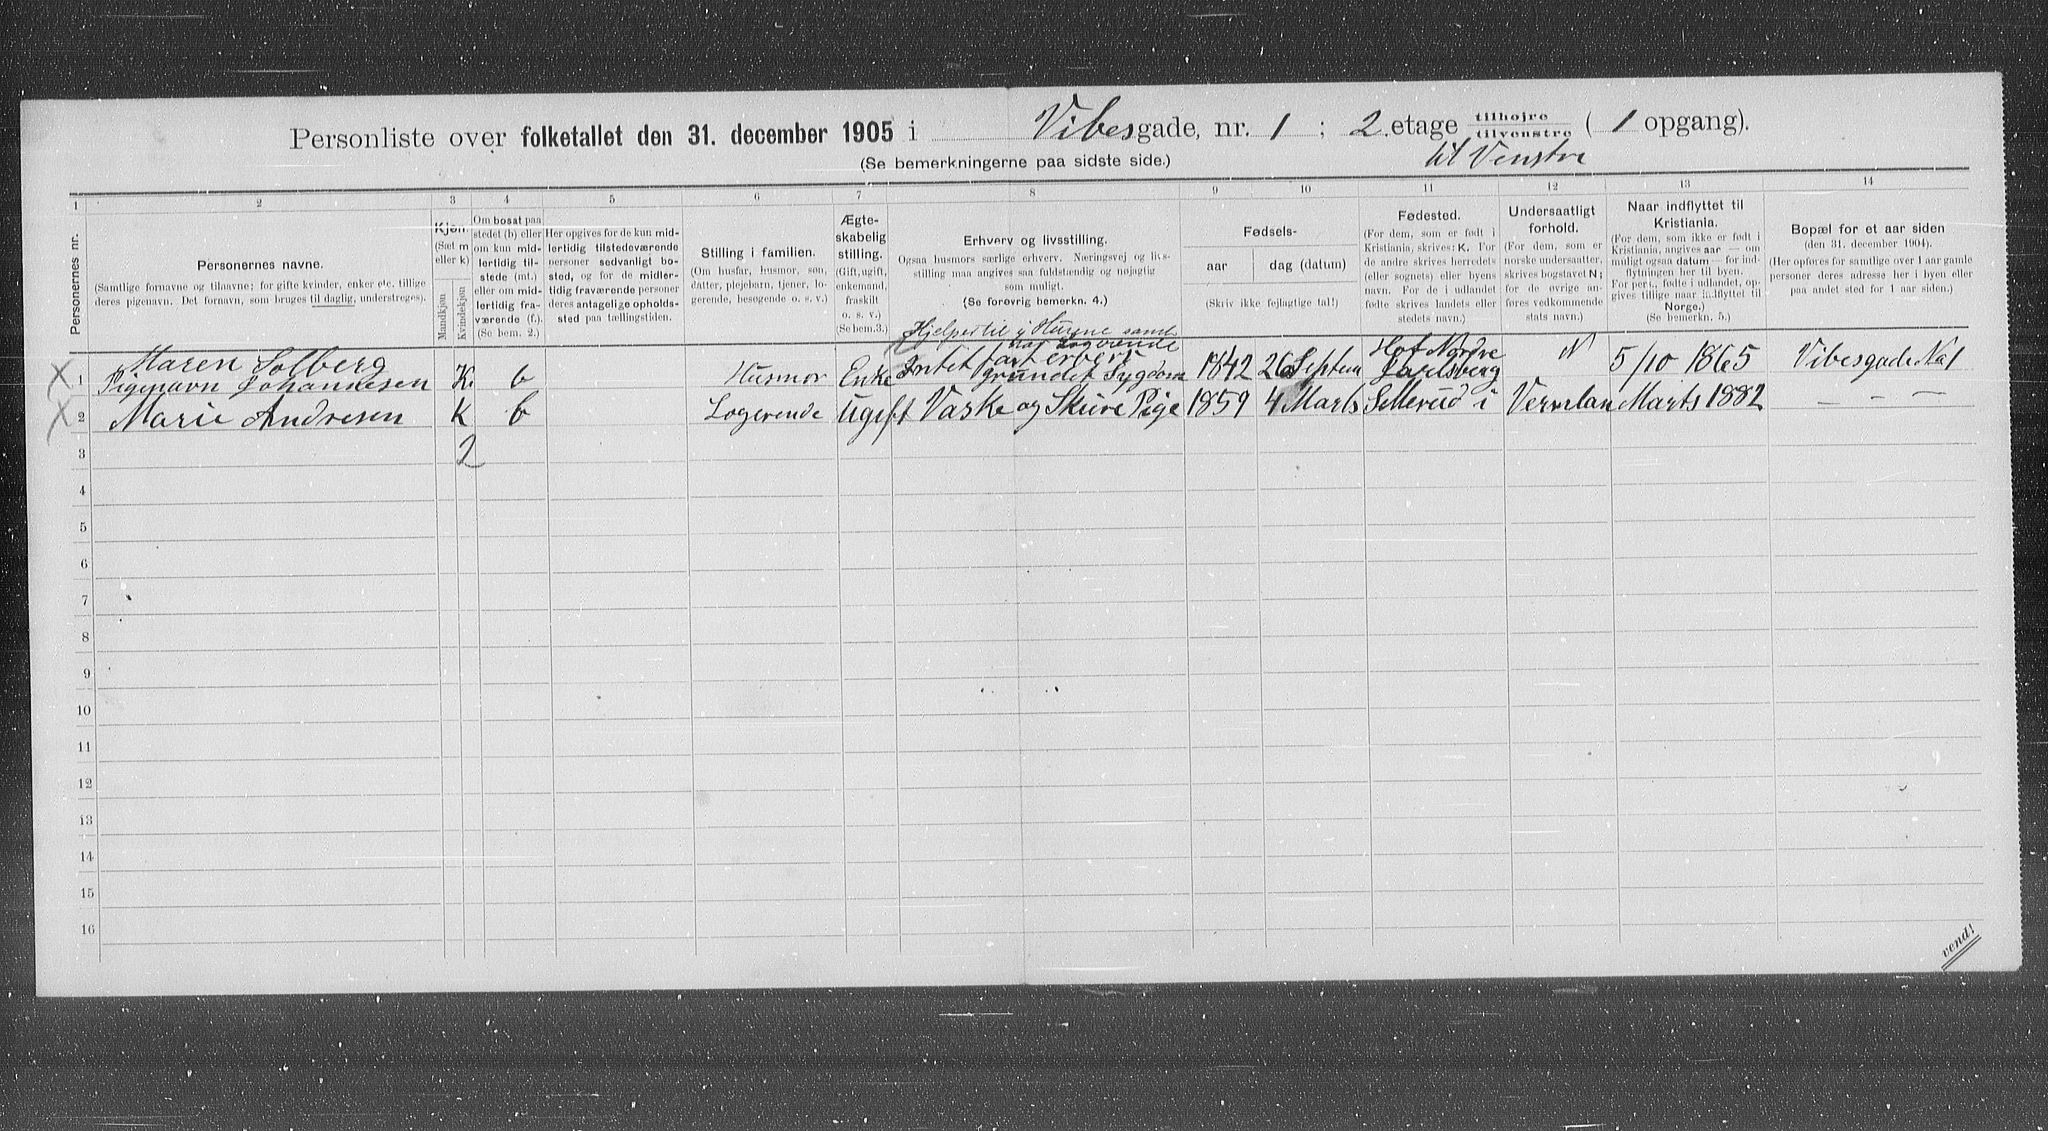 Personliste over folketallet den 31. december 1905 i Vibesgade, nr. 1 ; 2 etage tilhøjre tilvenstre ( 1 opgang).
(Se bemerkningerne paa sidste side.) til Venstre
1 2 3 4 5 6 7 8 9 10 11 12 13 14
Personernes nr.
Personernes navne.
(Samtlige fornavne og tilnavne; for gifte kvinder, enker etc. tillige
deres pigenavn. Det fornavn, som bruges til daglig, understreges).
Kjøn.
(Sæt m
eller k)
Mandkjøn
Kvindekjøn
Om bosat paa
stedet (b) eller
om kun mid-
lertidig til-
stede (mt.)
eller om mid-
lertidig fra-
værende (f.).
(Se bem. 2.)
Her opgives for de kun mid-
lertidig tilstedeværende
personer sedvanligt bo-
sted, og for de midler-
tidig fraværende personer
deres antagelige opholds-
sted paa tællingstiden.
Stilling i familien.
(Om husfar, husmor, søn,
datter, plejebarn, tjener, lo-
gerende, besøgende o. s. v.)
Ægte-
skabelig
stilling.
(Gift, ugift,
enkemand,
fraskilt
o. s. v.)
(Se bem. 3.)
Erhverv og livsstilling.
Ogsaa husmors særlige erhverv. Næringsvej og livs-
stilling maa angives saa fuldstændig og nøjagtig
som muligt.
(Se forøvrig bemerkn. 4.)
Fødsels-
aar
dag (datum)
(Skriv ikke fejlagtige tal!)
Fødested.
(For dem, som er født i
Kristiania, skrives: K. For
de andre skrives herredets
(eller sognets) eller byens
navn. For de i udlandet
fødte skrives landets eller
stedets navn.)
Undersaatligt
forhold.
(For dem, som er
norske undersaatter,
skrives bogstavet N;
for de øvrige an-
føres vedkommende
stats navn.)
Naar indflyttet til
Kristiania.
(For dem, som ikke er født i
Kristiania, angives aar — om
muligt ogsaa datum — for ind-
flytningen her til byen.
For pers. fødte i udlandet, op-
gives tillige naar indflyttet til
Norge.)
(Se bemerkn. 5.)
Bopæl for et aar siden
(den 31. december 1904).
(Her opføres for samtlige over 1 aar gamle
personer deres adresse her i byen eller
paa andet sted for 1 aar siden.)
Hjelper til i Husene samt
har Logerende
Maren Solberg Intet fast erhverv Hof Nordre
1 Pigenavn Johannesen K. b Husmor Enke grundet Sygdom 1842 26 Septem Jarlsberg N 5/10 1865 Vibesgade No 1
2 Marie Andresen K b Logerende Ugift Vaske og Skure Pige 1859 4 Marts Sillerud i Vermlan Marts 1882 — — —
3 2
4
5
6
7
8
9
10
11
12
13
14
15
16
vend!